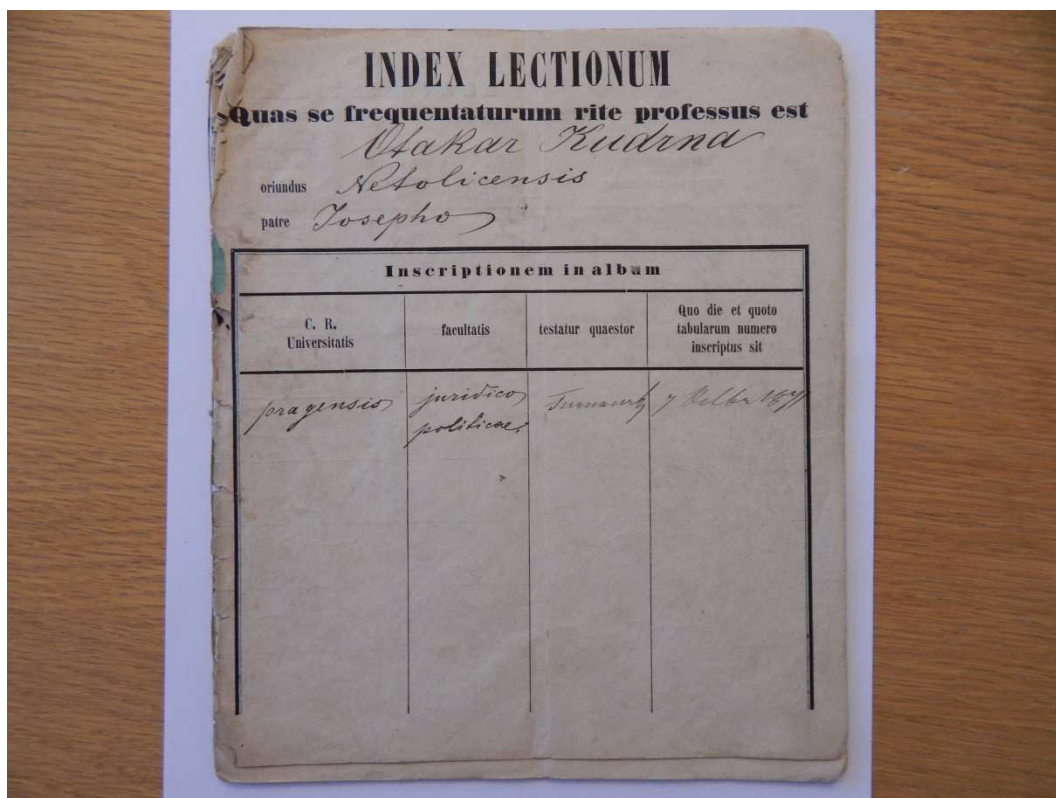 INDEX LECTIONUM
Quas se frequentaturum rite professus est
Otakar Kudrna
oriundus Netolicensis
patre Josepho
Inscriptionem in album
C. R.
Universitatis
facultatis
testatur quaestor
Quo die et quoto
tabularum numero
inscriptus sit
pragensis
juridico
politicae
7